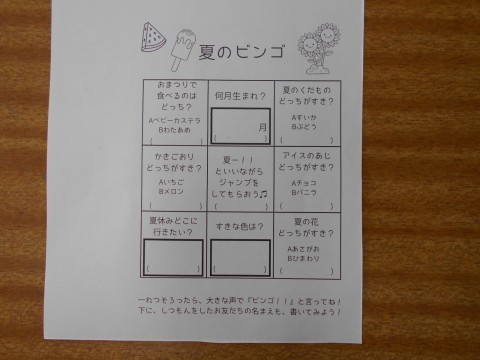 夏のビンゴ
おまつりで
食べるのは
どっち？
Aベビーカステラ
Bわたあめ
( )
何月生まれ？
月
( )
夏のくだもの
どっちがすき？
Aすいか
Bぶどう
( )
かきごおり
どっちがすき？
Aいちご
Bメロン
( )
夏ー！！
といいながら
ジャンプを
してもらおう♫
( )
アイスのあじ
どっちがすき？
Aチョコ
Bバニラ
( )
夏休みどこに
行きたい？
( )
すきな色は？
( )
夏の花
どっちがすき？
Aあさがお
Bひまわり
( )
一れつそろったら、大きな声で『ビンゴ！！』と言ってね！
下に、しつもんをしたお友だちの名まえも、書いてみよう！